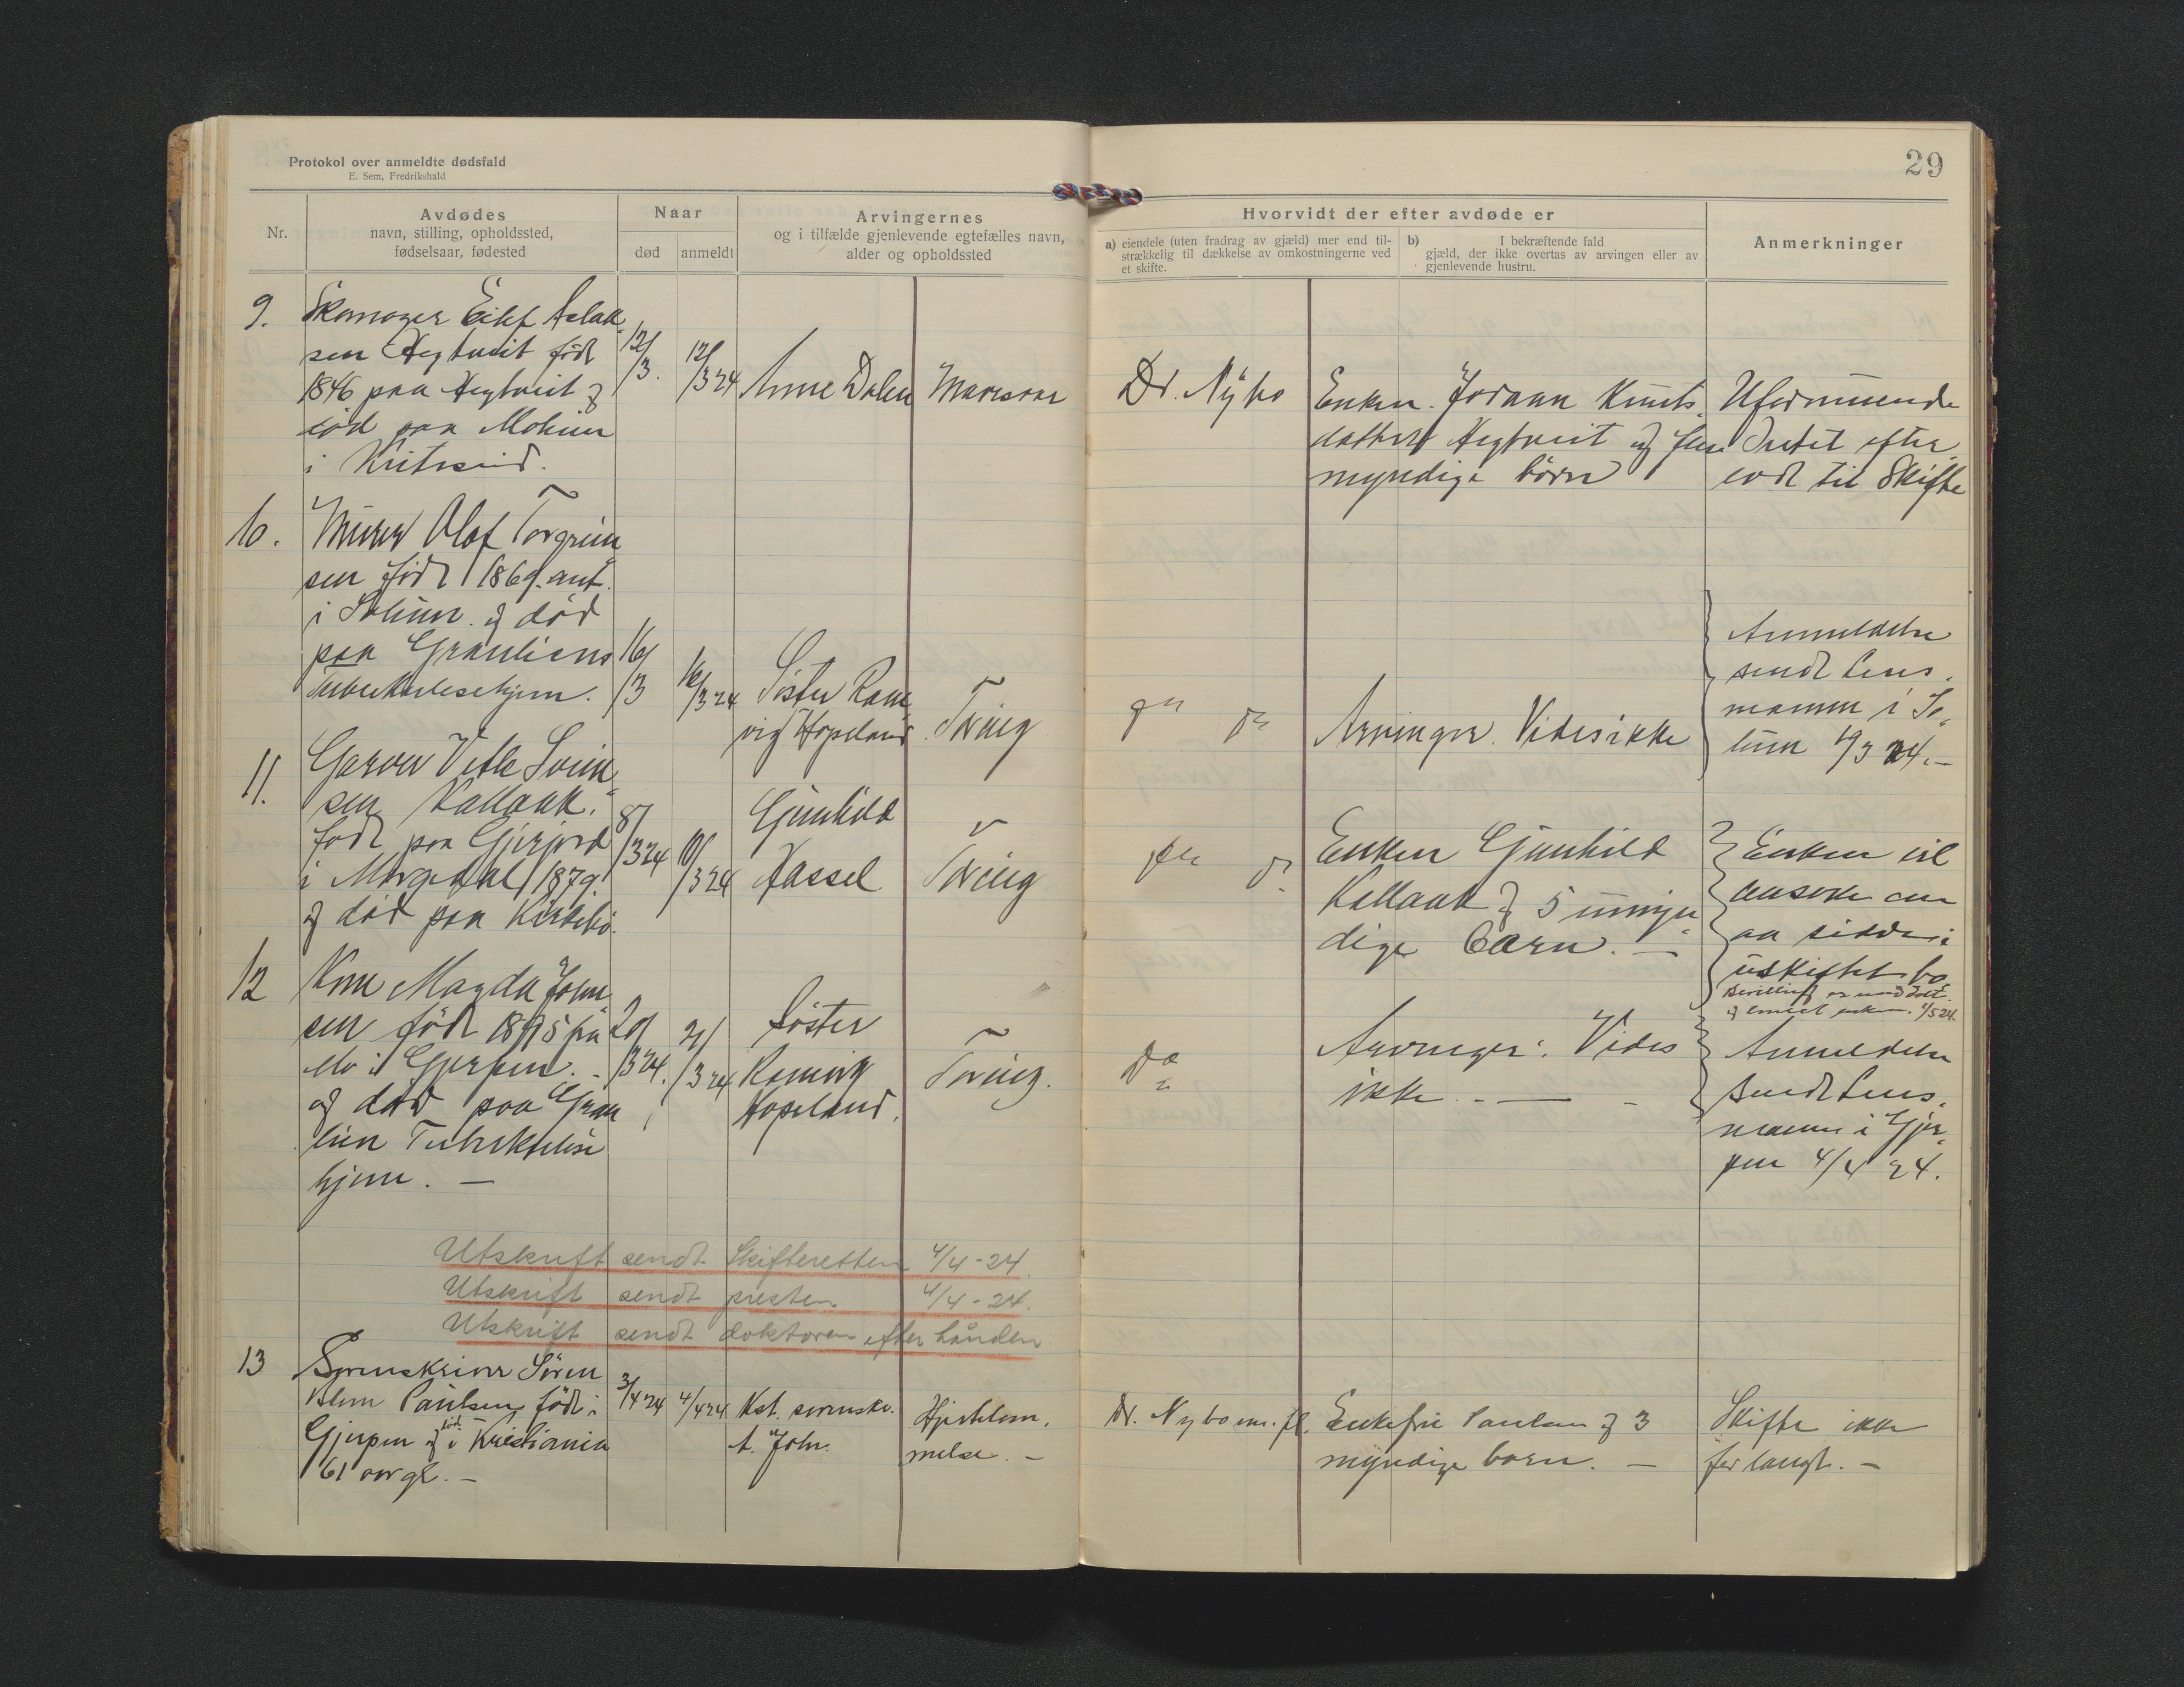 Protokol over anmeldte dødsfald
E. Sem, Fredrikshald
29
Nr.
Avdødes
navn, stilling, opholdssted,
fødselsaar, fødested
Naar
død
anmeldt
Arvingernes
og i tilfælde gjenlevende egtefælles navn,
alder og opholdssted
Hvorvidt der efter avdøde er
a) eiendele (uten fradrag av gjæld) mer end til-
strækkelig til dækkelse av omkostningerne ved
et skifte.
b) I bekræftende fald
gjæld, der ikke overtas av arvingen eller av
gjenlevende hustru.
Anmerkninger
9.
Skomager Eilef Aslak
sen Hegtveit født
1846 paa Hegtveit og
død paa Moheim
i Kviteseid.
12/3.
12/3 24
Anne Dalen
Dr. Nybo
Enken Joraan Knuts
datter Hegtveit og flere
myndige børn
Uformuende
Intet efter
ladt til Skifte
10.
Murer Olaf Torgrim
sen født 1869. ant.
i Solum og død
paa Granliens
Tuberkulosehjem.
16/3
16/3 24
Søster Ran
vig Hopeland
Tveing
Arvinger. Vides ikke
Anmeldelse
sendt Lens
mannen i So
lum 19/3 24. —
11.
Garver Vetle Svein
sen Kallaak.
født paa Gjerjord
i Morgedal 1879.
og død paa Kirkebø.
8/3 24
10/3 24
Gunhild
Hassel
Tveing
Enken Gunhild
Kallaak og 5 umyn
dige Børn. —
Enken vil
ansøke om
aa sidde i
uskiftet bo
12
Kone Magda John
sen født 1895 på
Mo i Gjerpen. -
og død paa Gran
lien Tuberkulose
hjem. —
20/3 24.
21/3 24
Søster
Ranvig
Hopeland.
Tveing.
Do
Arvinger: Vides
ikke. —
Anmeldelse
sendt Lens
mannen i Gjer
pen 4/4 24.
Utskrift sendt Skifteretten 4/4 - 24.
Utskrift sendt presten 4/4 - 24.
Utskrift sendt doktoren efter hånden
13
Sorenskriver Søren
Blom Paulsen født i
Gjerpen og død i Kristiania
61 aar gl. —
3/4 24
4/4 24
Kst. sorenskr.
A. John.
Hjertelam.
melse. —
Dr. Nybo m. fl.
Enkefru Paulsen og 3
myndige børn. —
Skifte ikke
forlangt. —